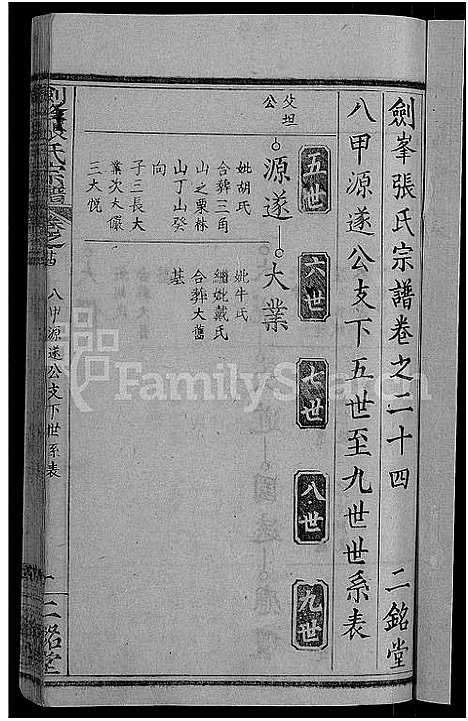 劍峯張氏宗譜卷之二十四 二銘堂
八甲源遂公支下五世至九世世系表
五世 六世 七世 八世 九世
父坦公
源遂 大業
妣胡氏
合葬三角
山之栗林
山丁山癸
向
子三長大
業次大儼
三大悅
妣牛氏
繼妣戴氏
合葬大舊
基
氏宗譜
八甲源遂公支下世系表
二銘堂
FamilySearch